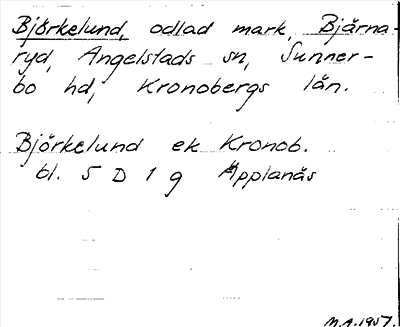 Björkelund, odlad mark, Bjärna-
ryd, Angelstads sn, Sunner-
bo hd, Kronobergs län.
Björkelund ek Kronob.
bl. 5 D 1 g Applanäs
M.A. 1957.